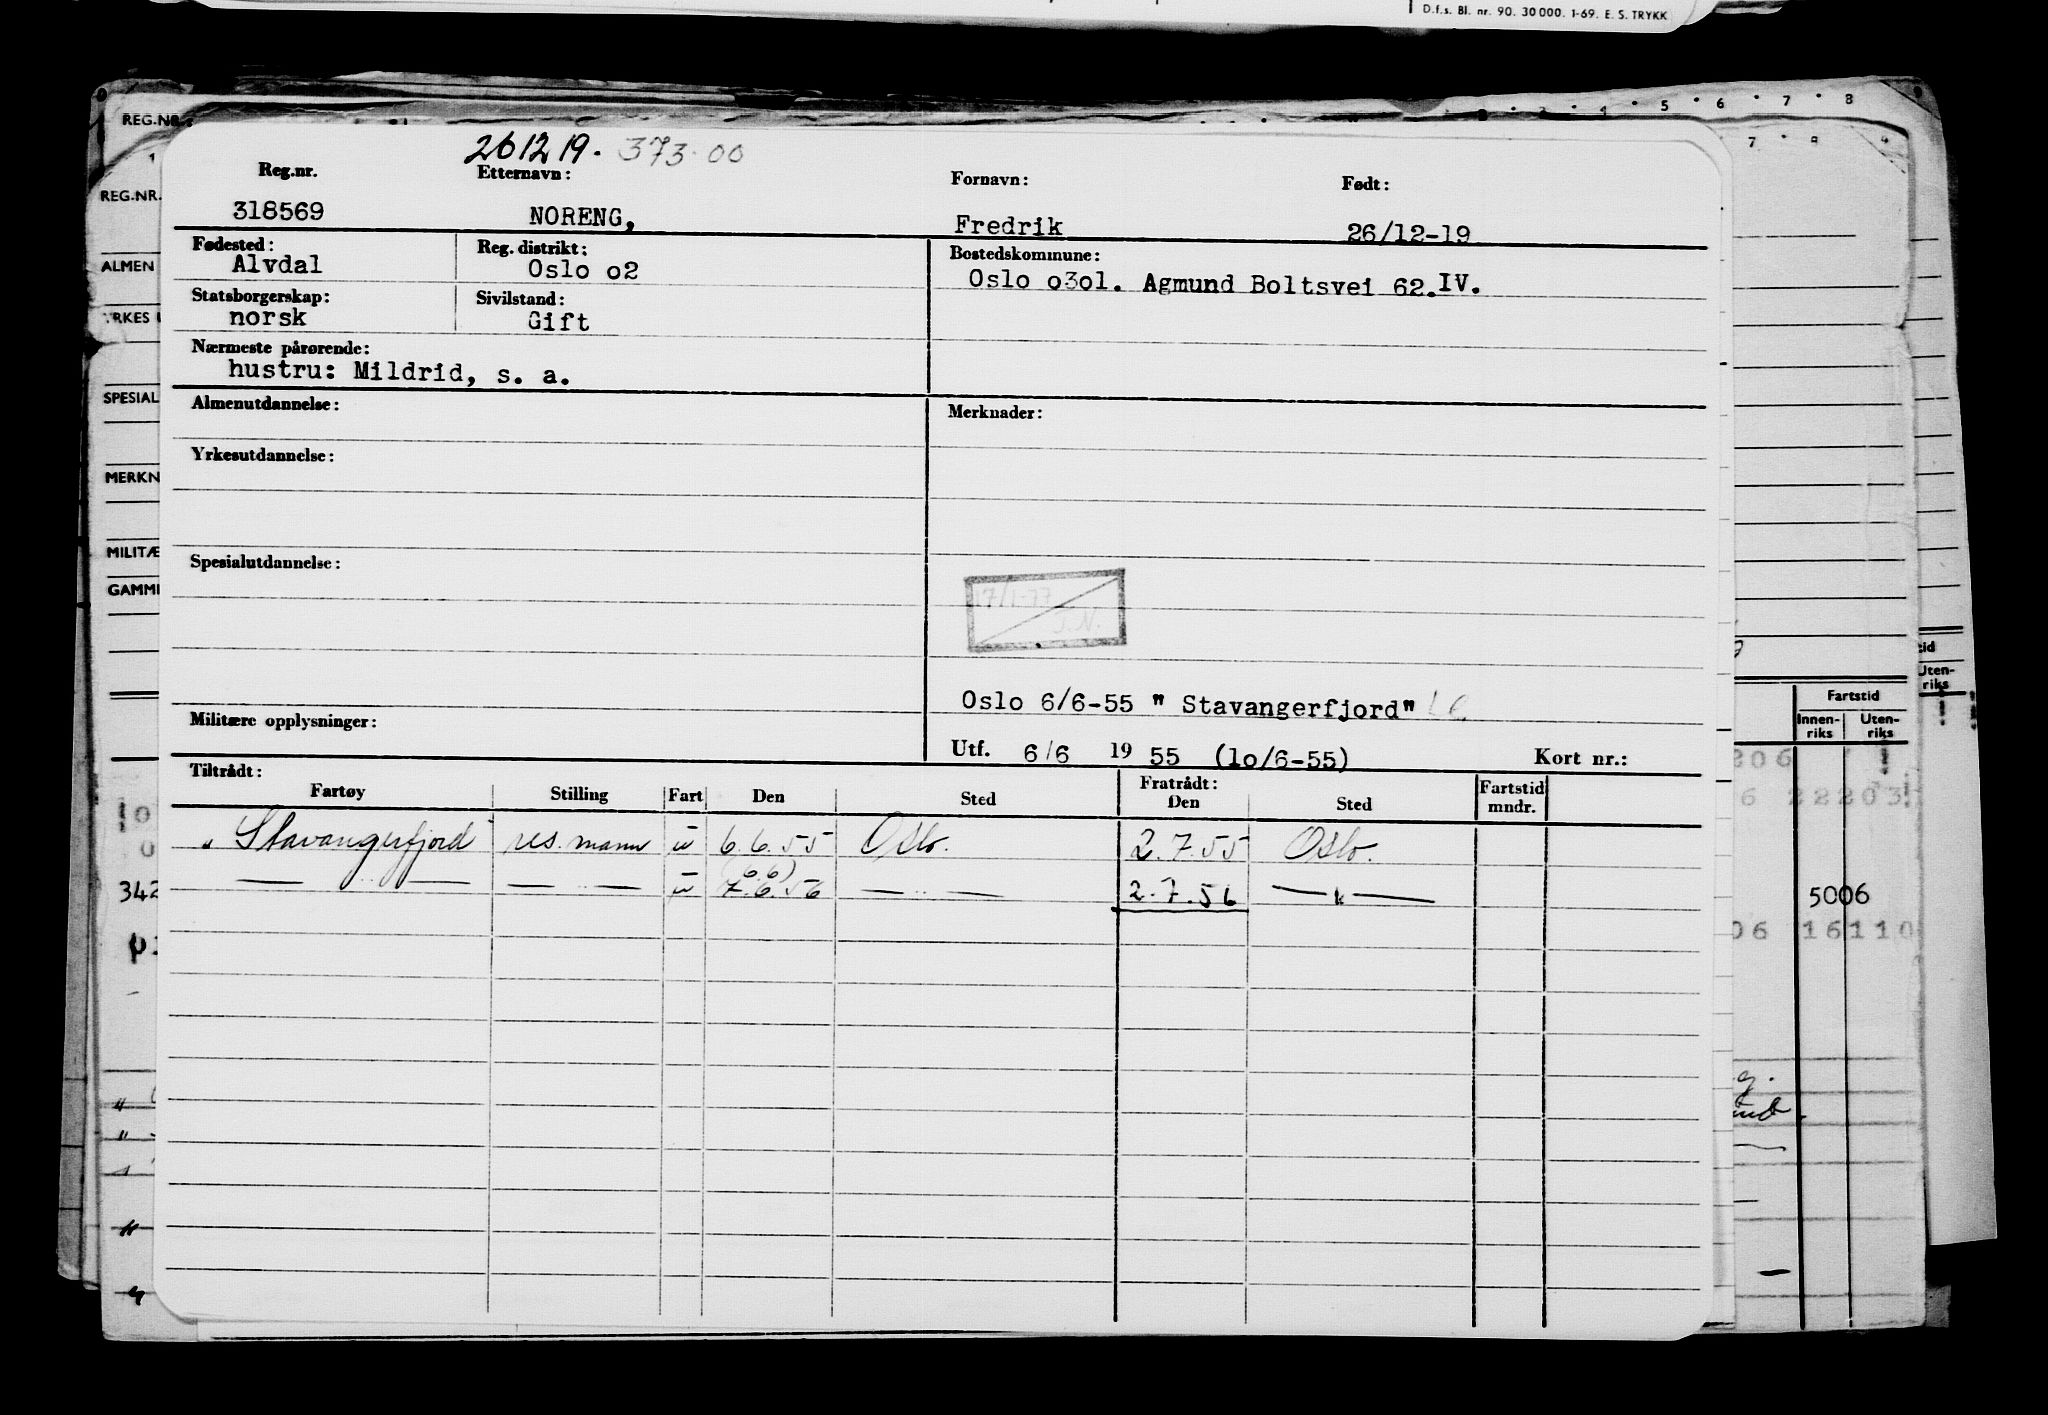 D.f.s. Bl. nr. 90. 30 000. 1-69. E. S. TRYKK
4 5 6 7 8
REG.NR.
REG.NR.
ALMEN
YRKES U
SPESIAL
MERKN
MILITÆ
GAMM
261219. 373.00
Reg.nr. Etternavn: Fornavn: Født:
318569 NORENG, Fredrik 26/12-19
Fødested: Reg. distrikt: Bostedskommune:
Alvdal Oslo o2 Oslo o3o1. Agmund Boltsvei 62.IV.
Statsborgerskap: Sivilstand:
norsk Gift
Nærmeste pårørende:
hustru: Mildrid, s. a.
Almenutdannelse: Merknader:
Yrkesutdannelse:
Spesialutdannelse:
17/1-77
J.N.
Oslo 6/6-55 " Stavangerfjord"
Militære opplysninger:
Utf. 6/6 19 55 (1o/6-55) Kort nr.:
Tiltrådt: Fratrådt:
Fartøy Stilling Fart Den Sted Den Sted Fartstid mndr.
" Stavangerfjord" res. mann u 6.6.55 Oslo. 2.7.55 Oslo.
— " — — " — u (6.6) 7.6.56 — " — 2.7.56 — " —
tid
Uten-
riks
Fartstid
Innen-
riks
Uten-
riks
206
6 22203
342
5006
06 16110